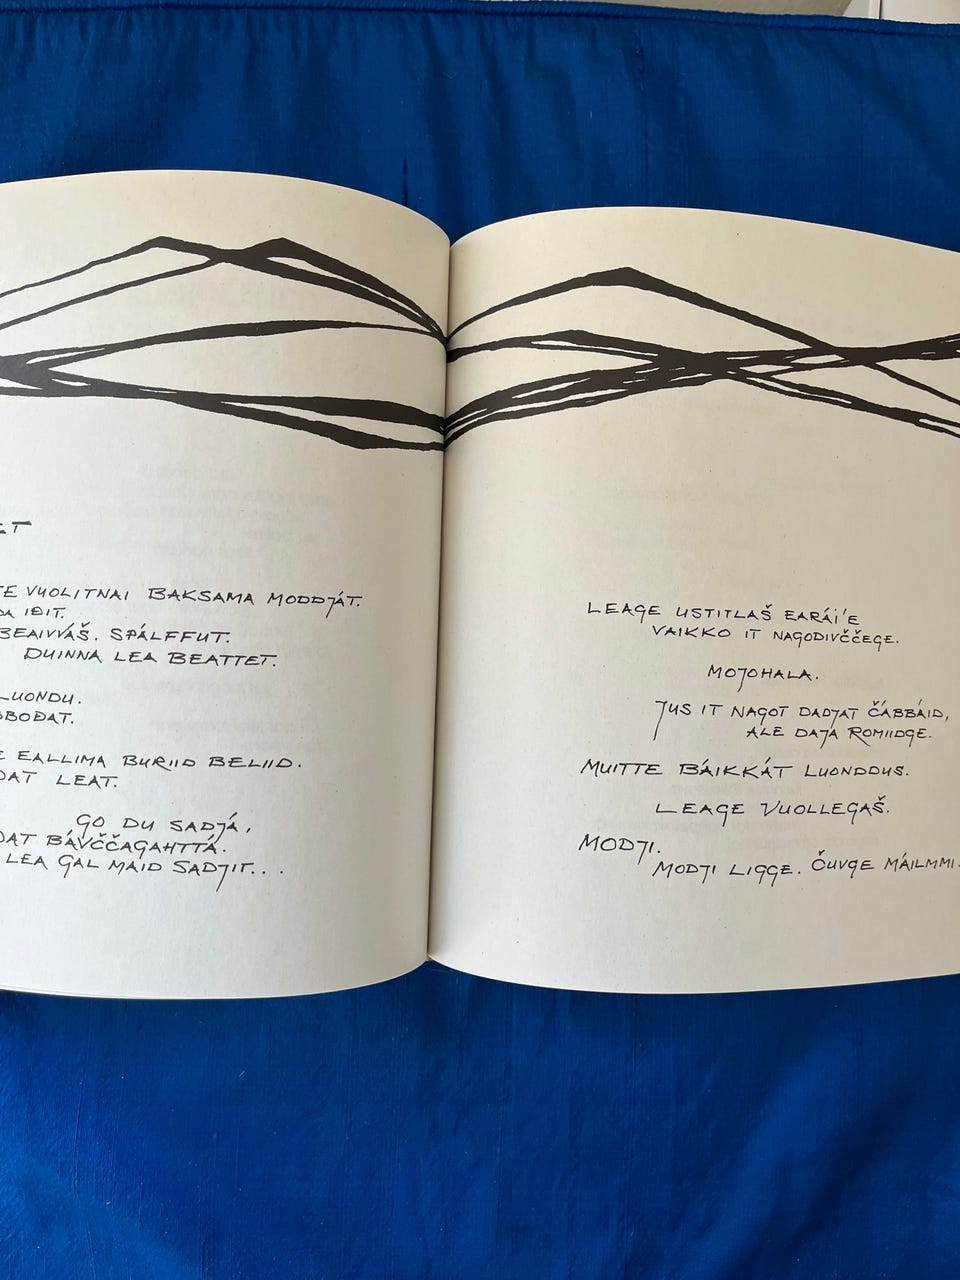 VUOLITNAI BAKSAMA MODDJÁT.
IĐIT.
BEAIVVÁŠ. SPÁLFFUT.
DUINNA LEA BEATTET.
LUONDU.
EALLIMA BURIID BELIID.
LEAT.
GO DU SADJÁ,
BÁVČČAGAHTTÁ.
LEA GAL MAID SADJIT...
LEAGE USTITLAŠ EARÁI'E
VAIKKO IT NAGODIVČČEGE.
MOJOHALA.
JUS IT NAGOT DADJAT ČÁBBÁID,
ALE DAJA ROMIIDGE.
MUITTE BÁIKKÁT LUONDDUS.
LEAGE VUOLLEGAŠ.
MODJI.
MODJI LIGGE. ČUVGE MÁILMMI.